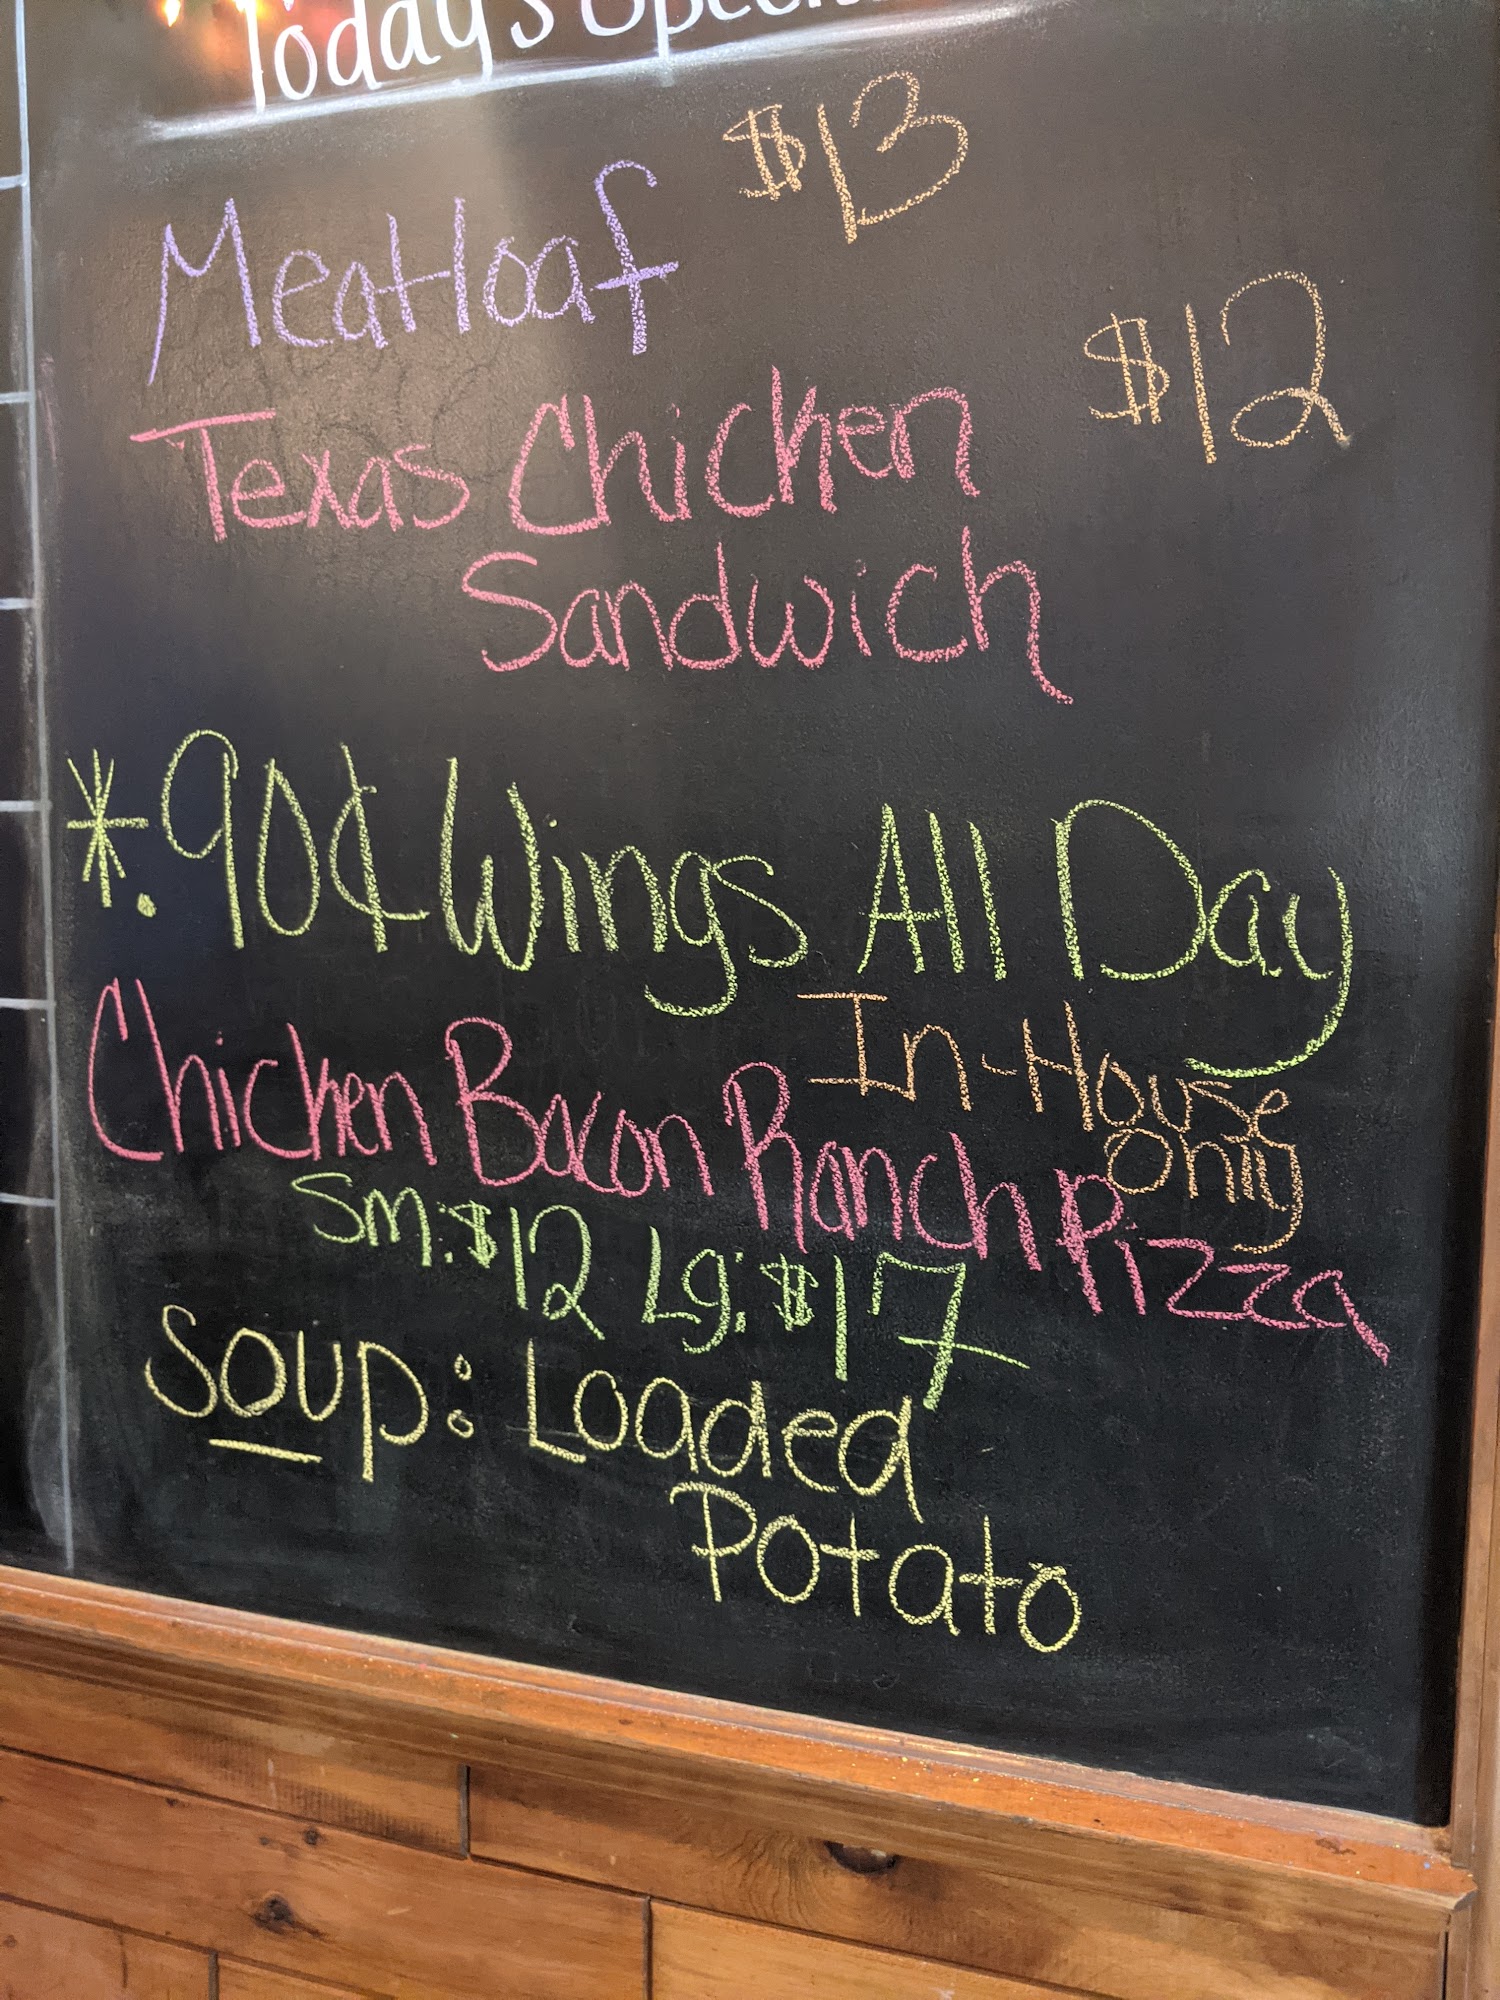 Today's
Meatloaf $13
Texas Chicken $12
Sandwich
*.90¢ Wings All Day
In-House
Only
Chicken Bacon Ranch Pizza
Sm: $12 Lg: $17
Soup: Loaded
Potato